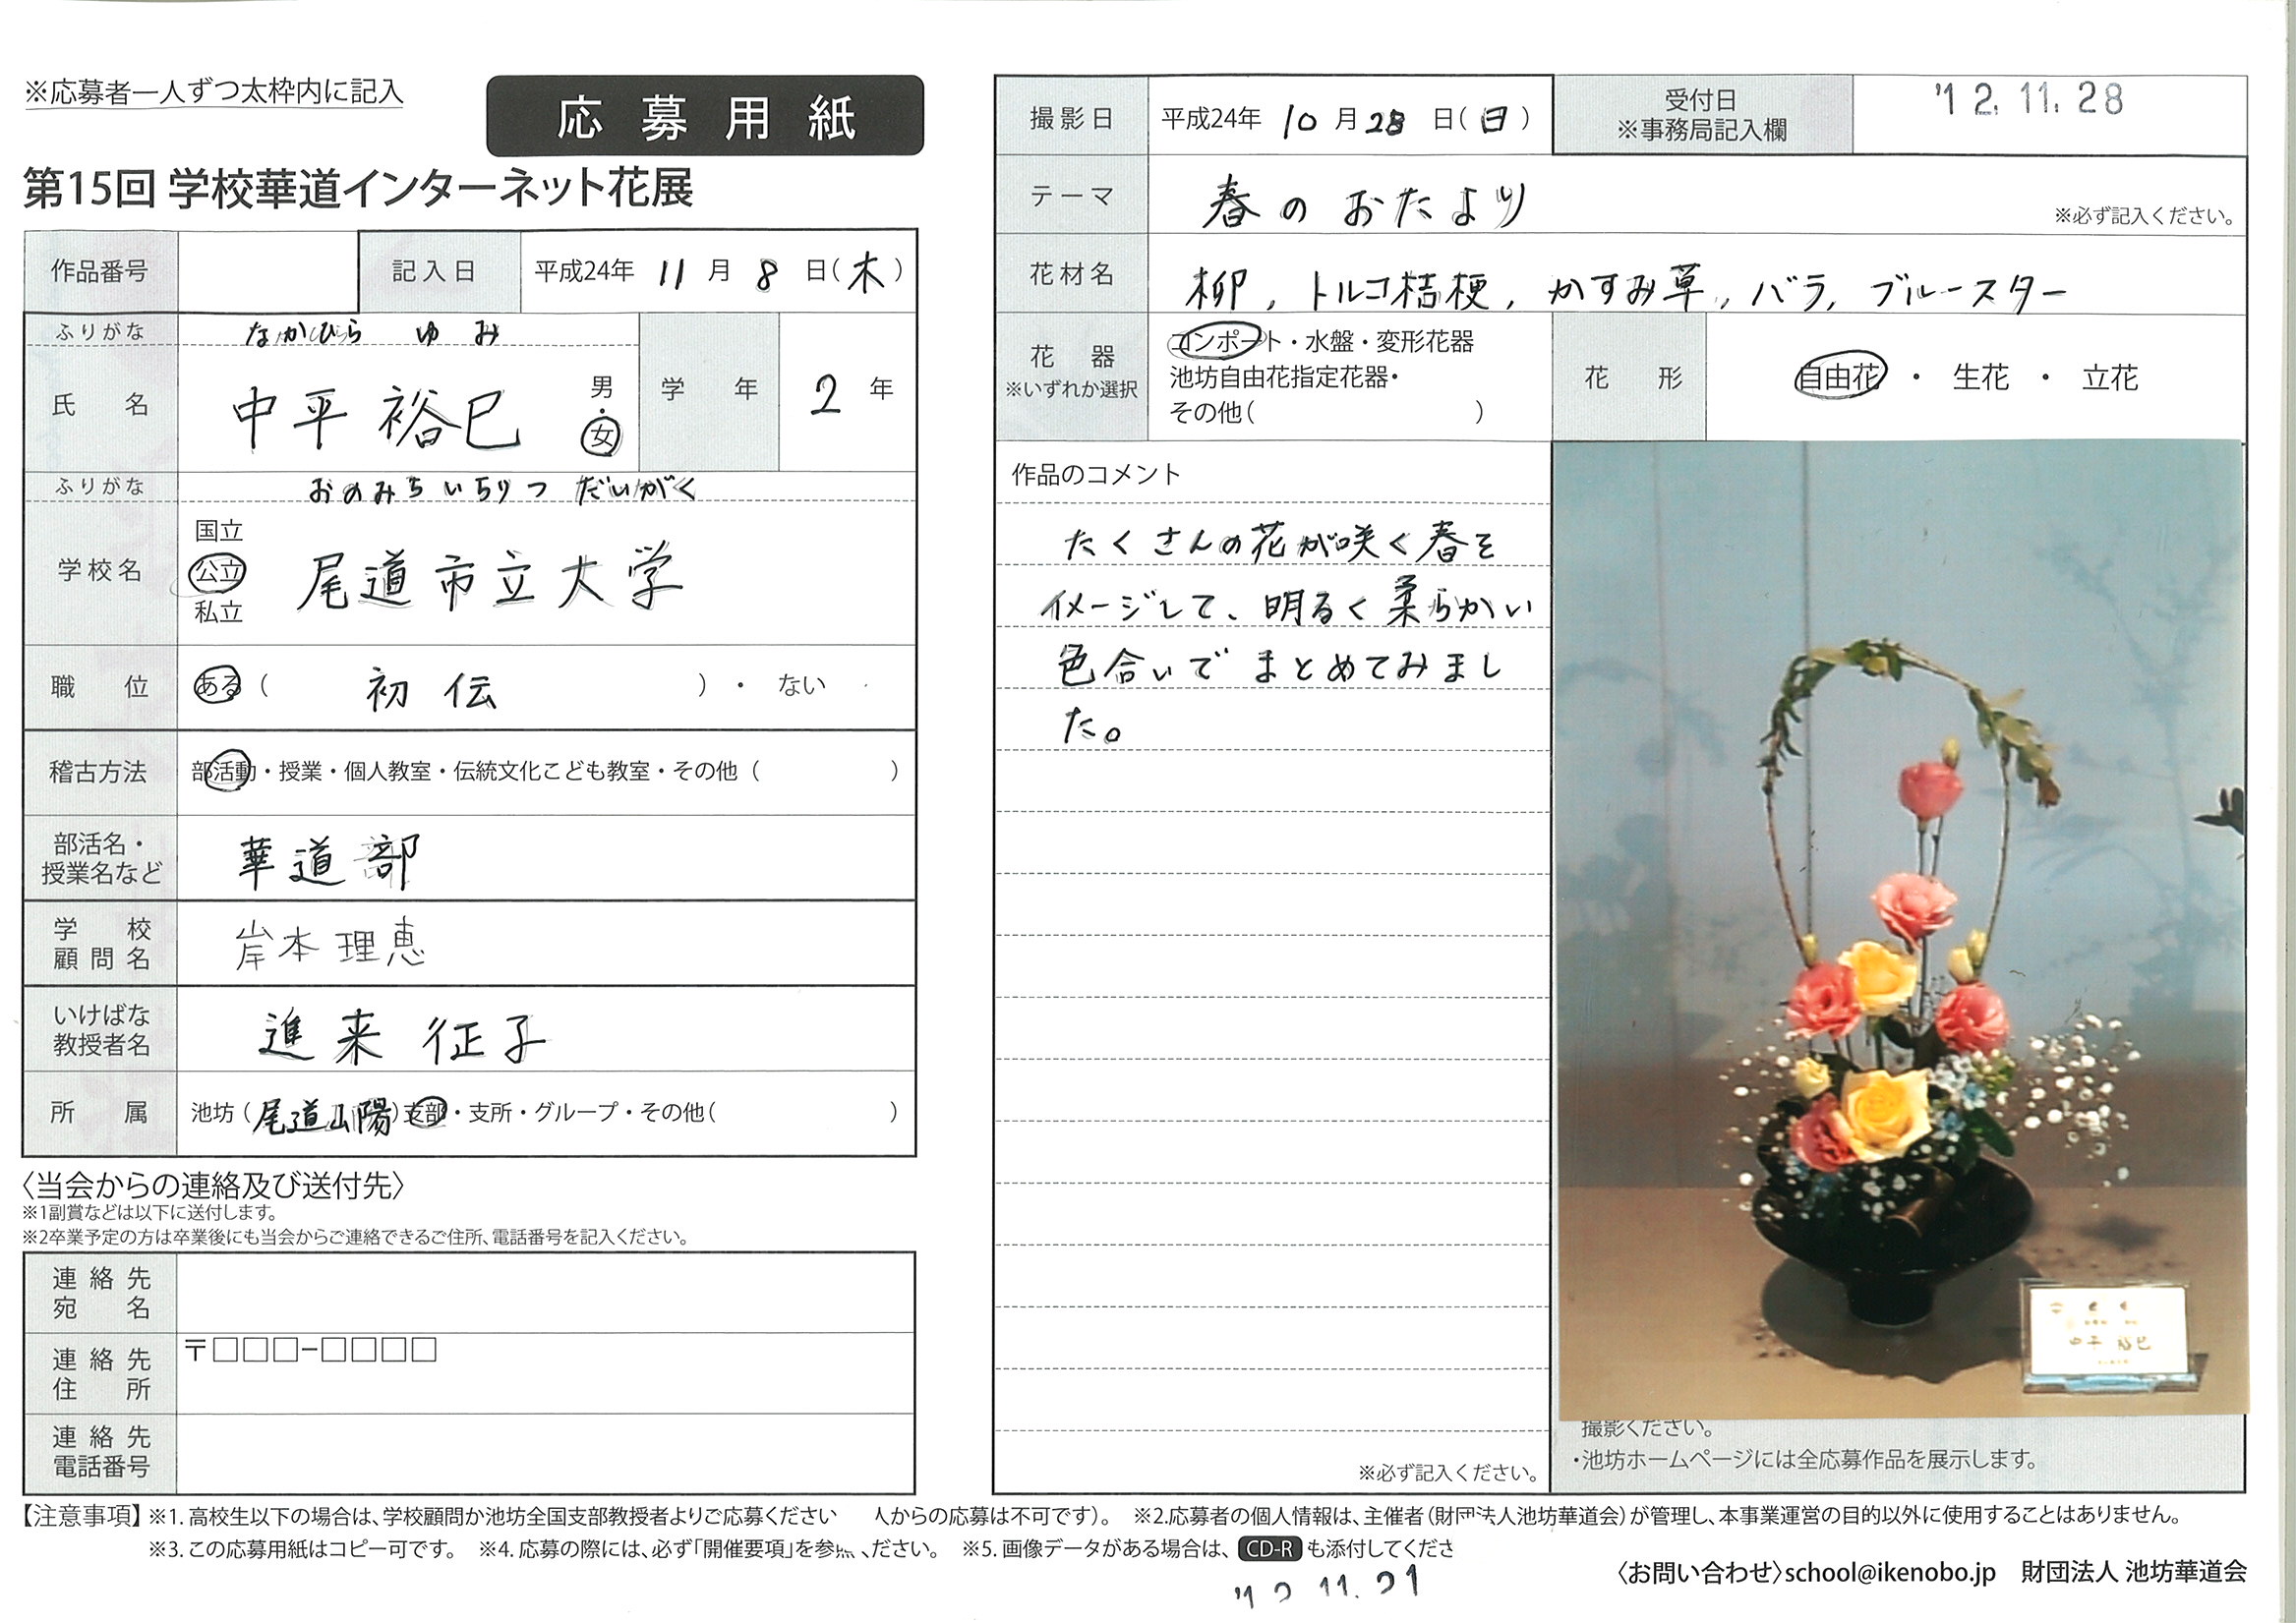 ※応募者一人ずつ太枠内に記入
応募用紙
第15回 学校華道インターネット花展
作品番号
記入日 平成24年 11月 8日(木)
ふりがな なかひら ゆみ
氏名 中平 裕巳 男・女
学年 2年
ふりがな おのみちいちりつ だいがく
学校名 国立 公立 私立 尾道市立大学
職位 ある( 初伝 )・ ない
稽古方法 部活動・授業・個人教室・伝統文化こども教室・その他( )
部活名・授業名など 華道部
学校顧問名 岸本理恵
いけばな教授者名 進来 征子
所属 池坊(尾道山陽)支部・支所・グループ・その他( )
〈当会からの連絡及び送付先〉
※1副賞などは以下に送付します。
※2卒業予定の方は卒業後にも当会からご連絡できるご住所、電話番号を記入ください。
連絡先宛名
連絡先住所 〒□□□-□□□□
連絡先電話番号
撮影日 平成24年 10月28日(日)
受付日 ※事務局記入欄 '12.11.28
テーマ 春のおたより ※必ず記入ください。
花材名 柳, トルコ桔梗, かすみ草, バラ, ブルースター
花器 ※いずれか選択 コンポート・水盤・変形花器
池坊自由花指定花器・
その他( )
花形 自由花 ・ 生花 ・ 立花
作品のコメント
たくさんの花が咲く春を
イメージして、明るく柔らかい
色合いでまとめてみまし
た。
※必ず記入ください。
中平 裕巳
撮影ください。
・池坊ホームページには全応募作品を展示します。
【注意事項】※1. 高校生以下の場合は、学校顧問か池坊全国支部教授者よりご応募ください 人からの応募は不可です)。 ※2.応募者の個人情報は、主催者(財団法人池坊華道会)が管理し、本事業運営の目的以外に使用することはありません。
※3. この応募用紙はコピー可です。 ※4. 応募の際には、必ず「開催要項」を参 ください。 ※5. 画像データがある場合は、CD-Rも添付してくださ
〈お問い合わせ〉school@ikenobo.jp 財団法人 池坊華道会